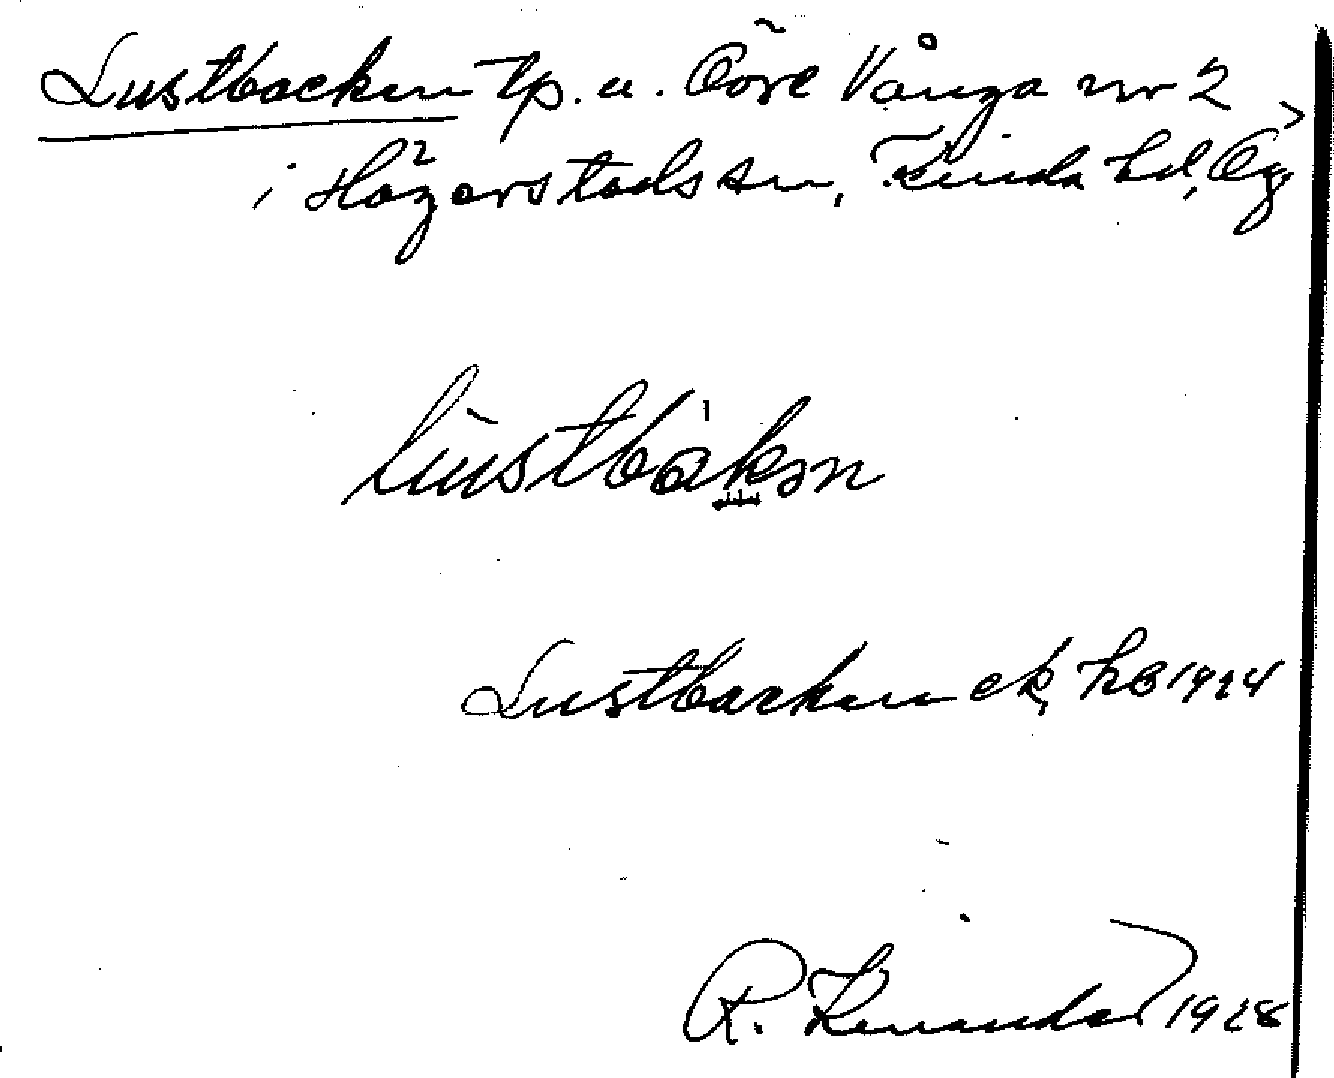 Lustbacken tp. u. Övre Vånga nr 2
i Hägerstads sn, Kinda hd, Ög
lustbakən
Lustbacken ek, hb 1924
R. 1928